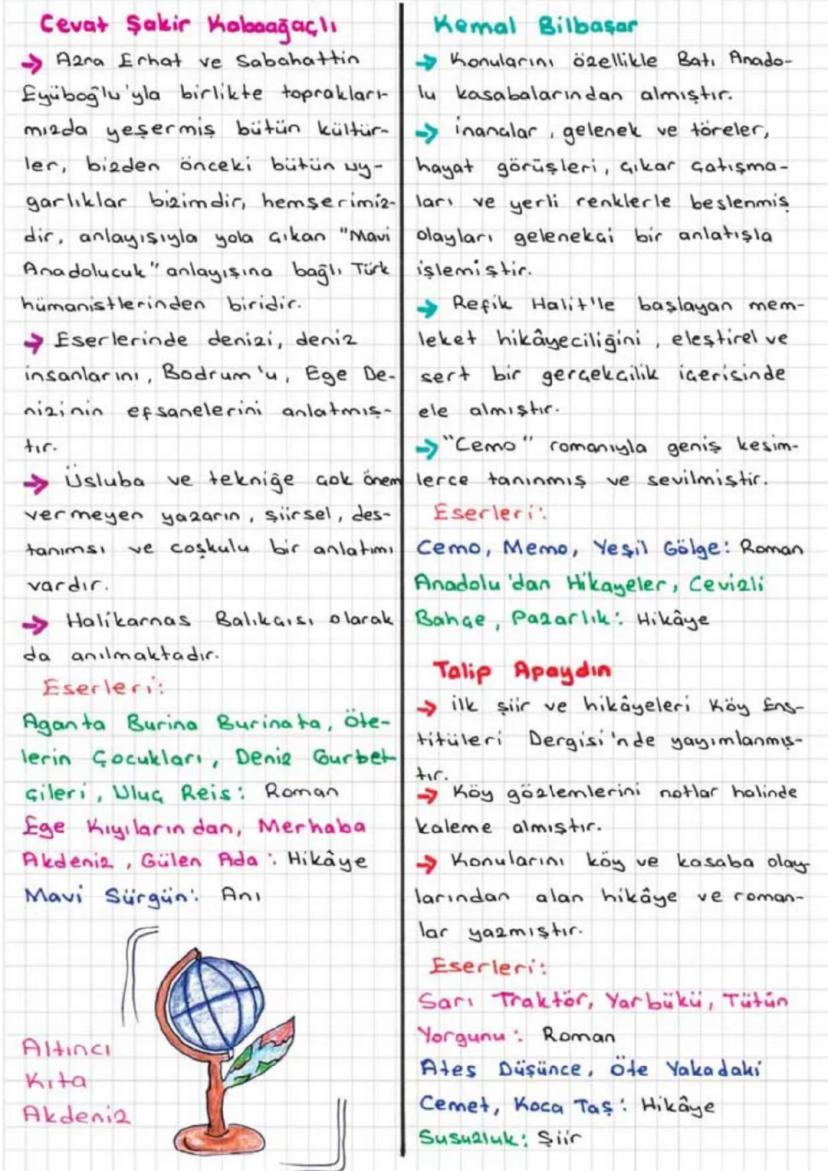 Cevat Şakir Kabaağaçlı
→ Azra Erhat ve Sabahattin
Eyüboğlu'yla birlikte toprakları-
mızda yeşermiş bütün kültür-
ler, bizden önceki bütün uy-
garlıklar bizimdir, hemşerimiz-
dir, anlayışıyla yola çıkan "Mavi
Anadolucuk" anlayışına bağlı Türk
hümanistlerinden biridir.
→ Eserlerinde denizi, deniz
insanlarını, Bodrum'u, Ege De-
nizinin efsanelerini anlatmış-
tır.
→ Üsluba ve tekniğe çok önem
vermeyen yazarın, şiirsel, des-
tanımsı ve coşkulu bir anlatımı
vardır.
→ Halikarnas Balıkçısı olarak
da anılmaktadır.
Eserleri:
Aganta Burina Burinata, Öte-
lerin Çocukları, Deniz Gurbet
çileri, Uluç Reis: Roman
Ege Kıyılarından, Merhaba
Akdeniz, Gülen Ada: Hikâye
Mavi Sürgün: Anı
Altıncı
Kıta
Akdeniz
Kemal Bilbaşar
→ Konularını özellikle Batı Anado-
lu kasabalarından almıştır.
→ inançlar, gelenek ve töreler,
hayat görüşleri, çıkar çatışma-
ları ve yerli renklerle beslenmiş
olayları gelenekçi bir anlatışla
işlemiştir.
→ Refik Halit'le başlayan mem-
leket hikâyeciliğini, eleştirel ve
sert bir gerçekçilik içerisinde
ele almıştır.
→ "Cemo" romanıyla geniş kesim-
lerce tanınmış ve sevilmiştir.
Eserleri:
Cemo, Memo, Yeşil Gölge: Roman
Anadolu'dan Hikayeler, Cevizli
Bahçe, Pazarlık: Hikâye
Talip Apaydın
→ ilk şiir ve hikâyeleri Köy Ens-
titüleri Dergisi'nde yayımlanmış-
tır.
→ Köy gözlemlerini notlar halinde
kaleme almıştır.
→ Konularını köy ve kasaba olay-
larından alan hikâye ve roman-
lar yazmıştır.
Eserleri:
Sarı Traktör, Yarbükü, Tütün
Yorgunu: Roman
Ates Düşünce, Öte Yakadaki
Cemet, Koca Taş: Hikâye
Susuzluk: Şiir